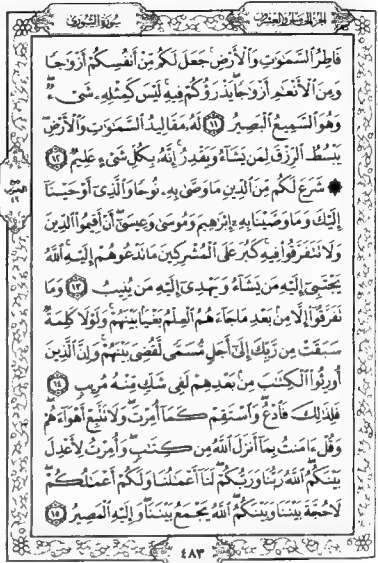 سورة الشورى
الجزء الخامس والعشرون
فَاطِرُ ٱلسَّمَٰوَٰتِ وَٱلْأَرْضِ جَعَلَ لَكُم مِّنْ أَنفُسِكُمْ أَزْوَٰجًا
وَمِنَ ٱلْأَنْعَٰمِ أَزْوَٰجًا يَذْرَؤُكُمْ فِيهِ لَيْسَ كَمِثْلِهِۦ شَىْءٌ
وَهُوَ ٱلسَّمِيعُ ٱلْبَصِيرُ ١١ لَهُۥ مَقَالِيدُ ٱلسَّمَٰوَٰتِ وَٱلْأَرْضِ
يَبْسُطُ ٱلرِّزْقَ لِمَن يَشَآءُ وَيَقْدِرُ إِنَّهُۥ بِكُلِّ شَىْءٍ عَلِيمٌ ١٢
۞ شَرَعَ لَكُم مِّنَ ٱلدِّينِ مَا وَصَّىٰ بِهِۦ نُوحًا وَٱلَّذِىٓ أَوْحَيْنَآ
إِلَيْكَ وَمَا وَصَّيْنَا بِهِۦٓ إِبْرَٰهِيمَ وَمُوسَىٰ وَعِيسَىٰٓ أَنْ أَقِيمُوا۟ ٱلدِّينَ
وَلَا تَتَفَرَّقُوا۟ فِيهِ كَبُرَ عَلَى ٱلْمُشْرِكِينَ مَا تَدْعُوهُمْ إِلَيْهِ ٱللَّهُ
يَجْتَبِىٓ إِلَيْهِ مَن يَشَآءُ وَيَهْدِىٓ إِلَيْهِ مَن يُنِيبُ ١٣ وَمَا
تَفَرَّقُوٓا۟ إِلَّا مِنۢ بَعْدِ مَا جَآءَهُمُ ٱلْعِلْمُ بَغْيًۢا بَيْنَهُمْ وَلَوْلَا كَلِمَةٌ
سَبَقَتْ مِن رَّبِّكَ إِلَىٰٓ أَجَلٍ مُّسَمًّى لَّقُضِىَ بَيْنَهُمْ وَإِنَّ ٱلَّذِينَ
أُورِثُوا۟ ٱلْكِتَٰبَ مِنۢ بَعْدِهِمْ لَفِى شَكٍّ مِّنْهُ مُرِيبٍ ١٤
فَلِذَٰلِكَ فَٱدْعُ وَٱسْتَقِمْ كَمَآ أُمِرْتَ وَلَا تَتَّبِعْ أَهْوَآءَهُمْ
وَقُلْ ءَامَنتُ بِمَآ أَنزَلَ ٱللَّهُ مِن كِتَٰبٍ وَأُمِرْتُ لِأَعْدِلَ
بَيْنَكُمُ ٱللَّهُ رَبُّنَا وَرَبُّكُمْ لَنَآ أَعْمَٰلُنَا وَلَكُمْ أَعْمَٰلُكُمْ
لَا حُجَّةَ بَيْنَنَا وَبَيْنَكُمُ ٱللَّهُ يَجْمَعُ بَيْنَنَا وَإِلَيْهِ ٱلْمَصِيرُ ١٥
٤٨٣